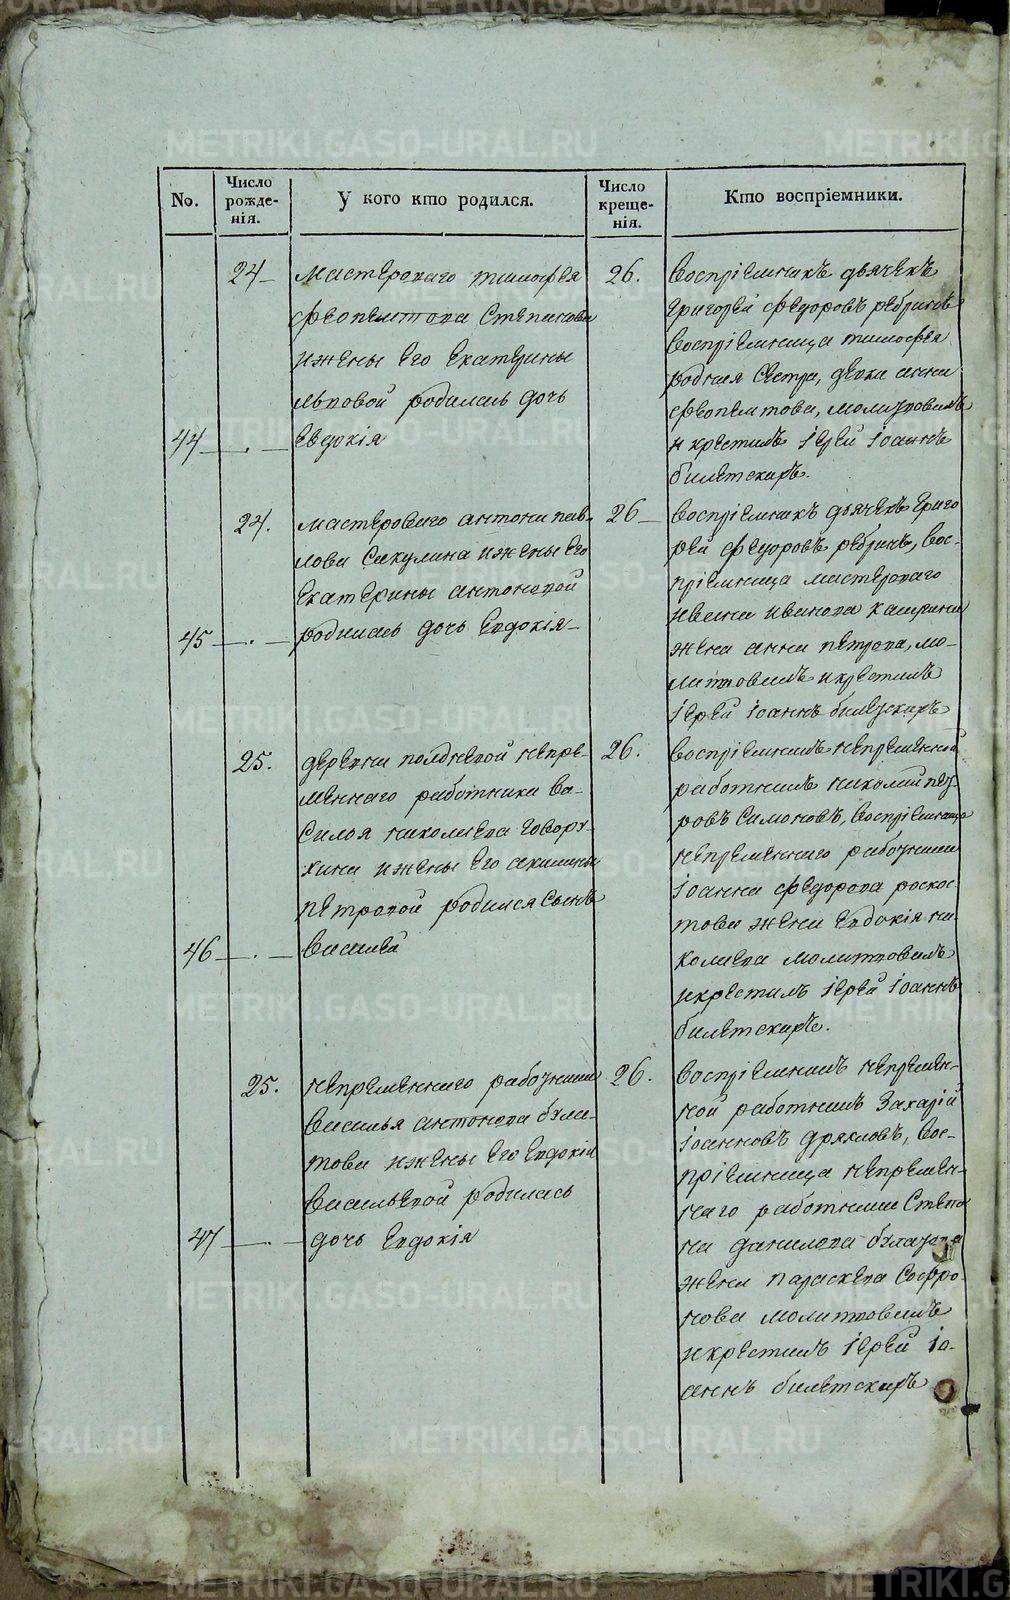 No.
Число рожде-нія.
У кого кто родился.
Число креще-нія.
Кто воспріемники.
24
Мастероваго Тимофея
Феопентова Степанова
и жены его Екатерины
Львовой родилась дочь
44
Евдокія
26.
Воспріемникъ дьячекъ
Григорей Федоровъ Ребринъ
воспріемница Тимофея
родная сестра, девка Анна
Феопентова, молитвовалъ
и крестилъ Іерей Іоаннъ
24.
Мастероваго Антона Пав-
лова Сакулина и жены его
Екатерины Антоновой
45
родилась дочь Евдокія
26
Воспріемникъ дьячекъ Григо
рей Федоровъ Ребринъ, вос-
пріемница мастероваго
Ивана Иванова
жена Анна Петрова, мо-
литвовалъ и крестилъ
Іерей Іоаннъ
25.
деревни Полдневой непре-
меннаго работника Ва-
силья Николаева Говору-
хина и жены его Акилины
Петровой родился сынъ
46
Василей
26.
Воспріемникъ непременной
работникъ Николай Пет-
ровъ Симоновъ, воспріемница
непременнаго работника
Іоанна Федорова Роскос-
това жена Евдокія Ни-
колаева молитвовалъ
и крестилъ Іерей Іоаннъ
25.
непременнаго работника
Василья Антонова Була-
това и жены его Евдокіи
Васильевой родилась
47
дочь Евдокія
26.
Воспріемникъ непремен-
ной работникъ Захарій
Іоанновъ Дряхловъ, вос-
пріемница непремен-
наго работника Степа
на Данилова Булатова
жена Параскева Софро-
нова молитвовалъ
и крестилъ Іерей Іо-
аннъ
METRIKI.GASO-URAL.RU